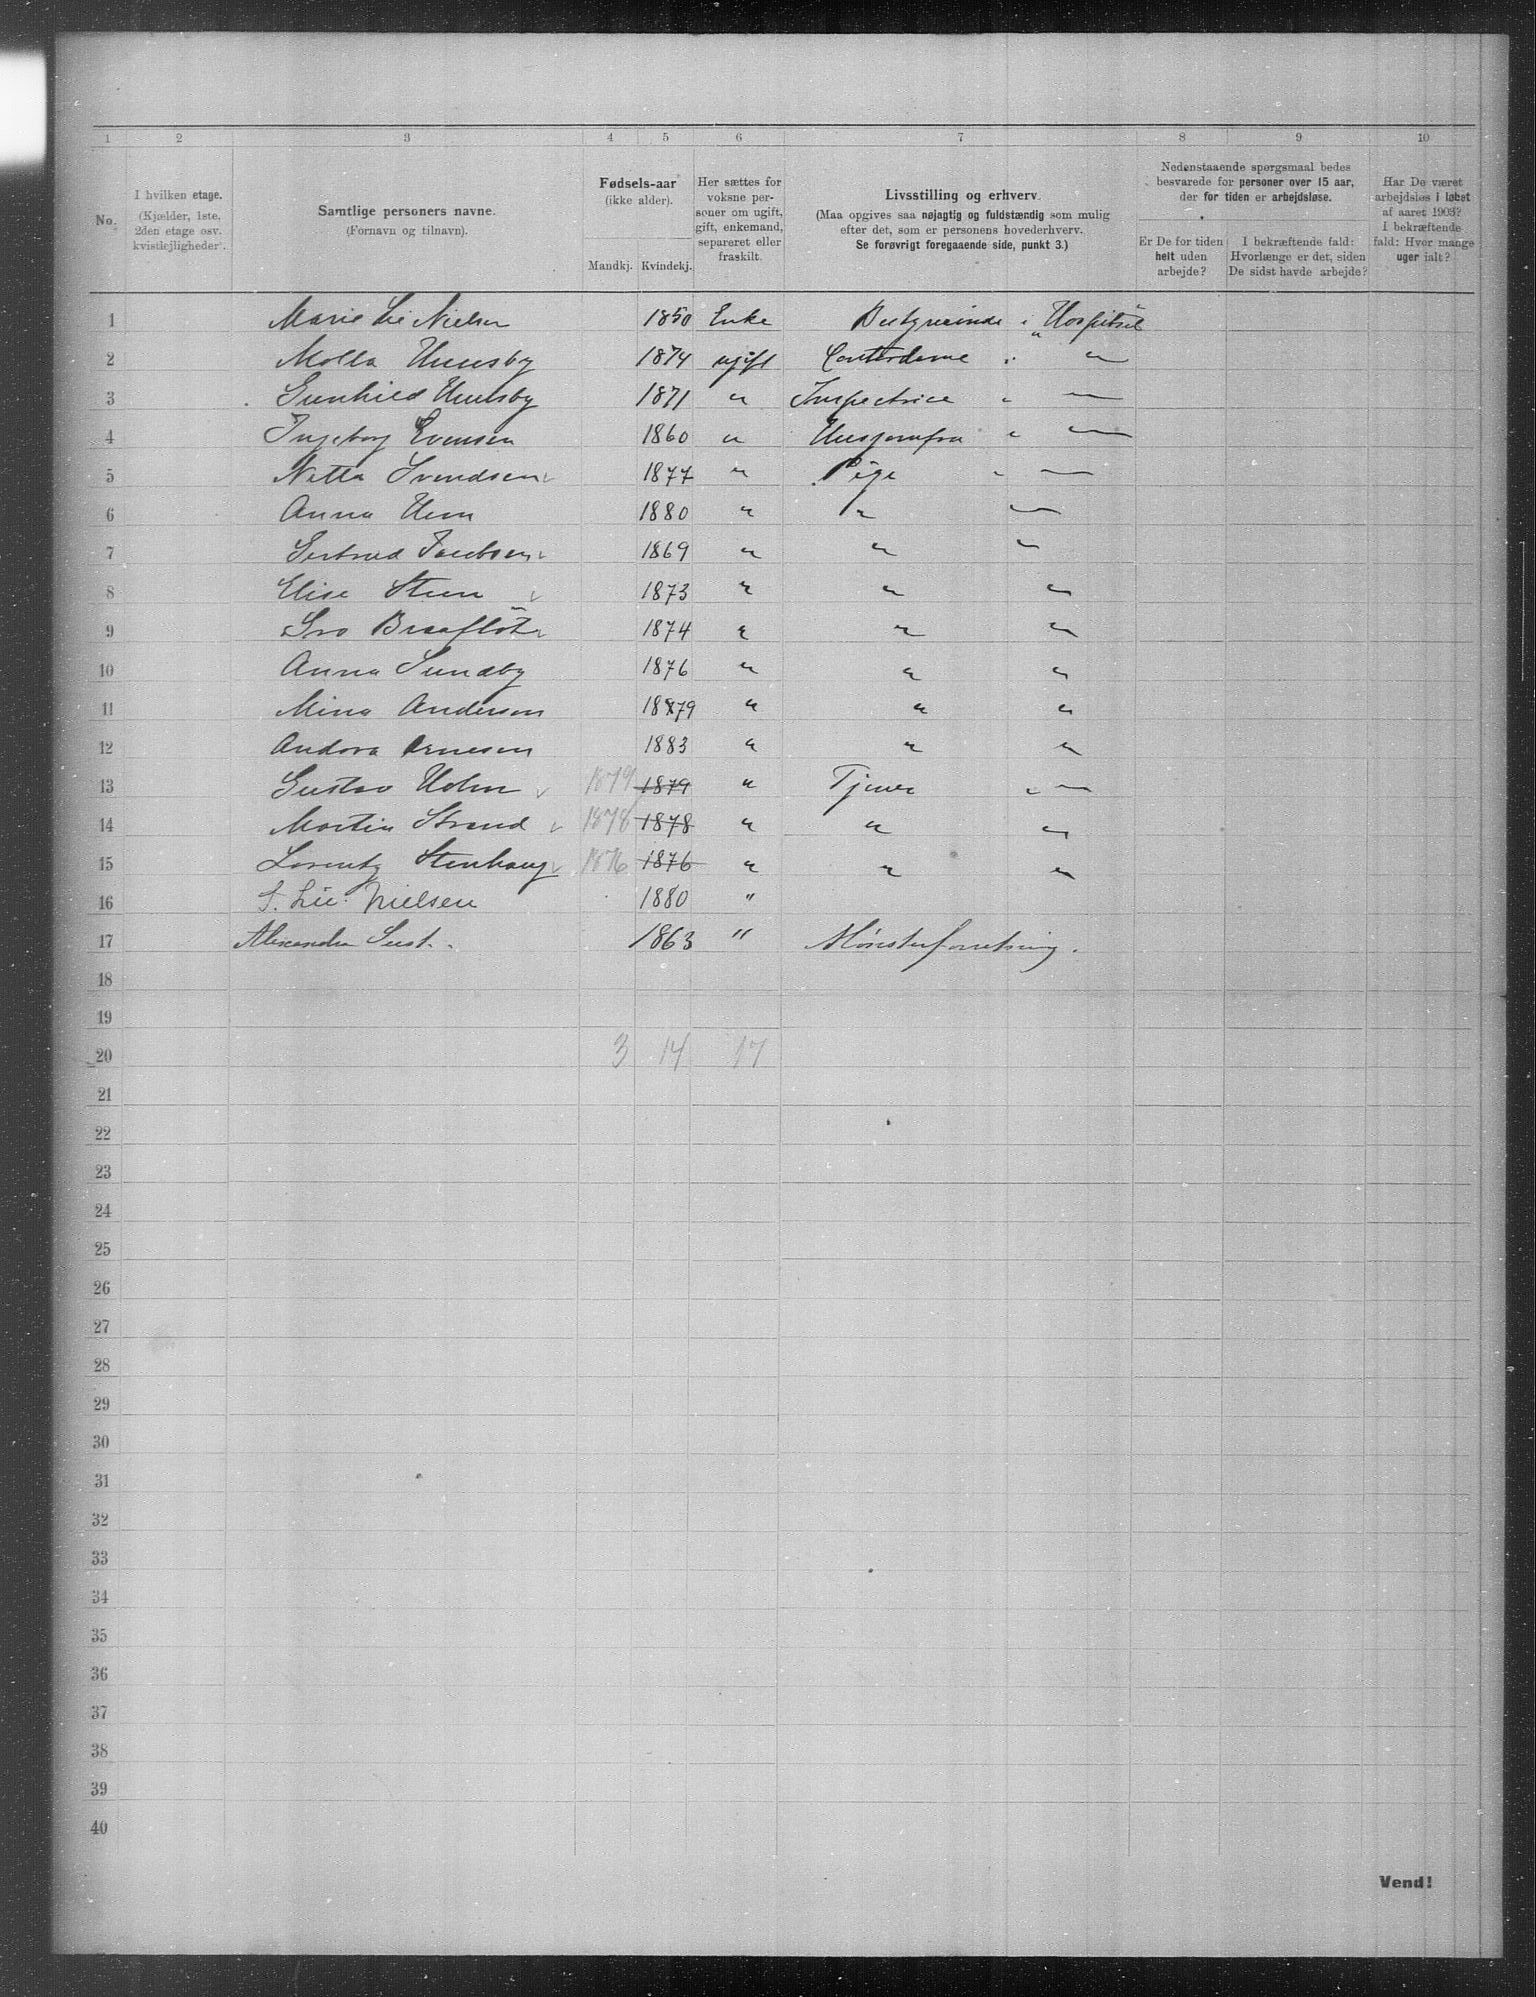 1 2 3 4 5 6 7 8 9 10
No.
I hvilken etage.
(Kjælder, 1ste, 2den etage osv. kvistlejligheder).
Samtlige personers navne.
(Fornavn og tilnavn).
Fødsels-aar
(ikke alder).
Mandkj. Kvindekj.
Her sættes for voksne personer om ugift, gift, enkemand, separeret eller fraskilt.
Livsstilling og erhverv.
(Maa opgives saa nøjagtig og fuldstændig som mulig efter det, som er personens hovederhverv.
Se forøvrigt foregaaende side, punkt 3.)
Nedenstaaende spørgsmaal bedes besvarede for personer over 15 aar, der for tiden er arbejdsløse.
Er De for tiden helt uden arbejde?
I bekræftende fald: Hvorlænge er det, siden De sidst havde arbejde?
Har De været arbejdsløs i løbet af aaret 1903? I bekræftende fald: Hvor mange uger ialt?
1 Marie Lie Nielsen 1850 Enke Bestyrerinde i Hospitset
2 Molla 1874 ugift " "
3 Gunhild 1871 " Inspectrice " "
4 Ingeborg Evensen 1860 " Husjomfru " "
5 Netta Svendsen 1877 " Pige " "
6 Anna 1880 " " "
7 Gertrud Jacobsen 1869 " " "
8 Elise Steen 1873 " " "
9 1874 " " "
10 Anna Sundby 1876 " " "
11 Mina Andersen 1879 " " "
12 Andora Arnesen 1883 " " "
13 Gustav Holm 1879 1879 " Tjener " "
14 Martin Strand 1878 1878 " " "
15 Lorentz Stenhaug 1876 1876 " " "
16 S. Lie Nielsen 1880 "
17 Alexandra 1863 " Mønsterforretning.
18
19
20 3 14 17
21
22
23
24
25
26
27
28
29
30
31
32
33
34
35
36
37
38
39
40
Vend!